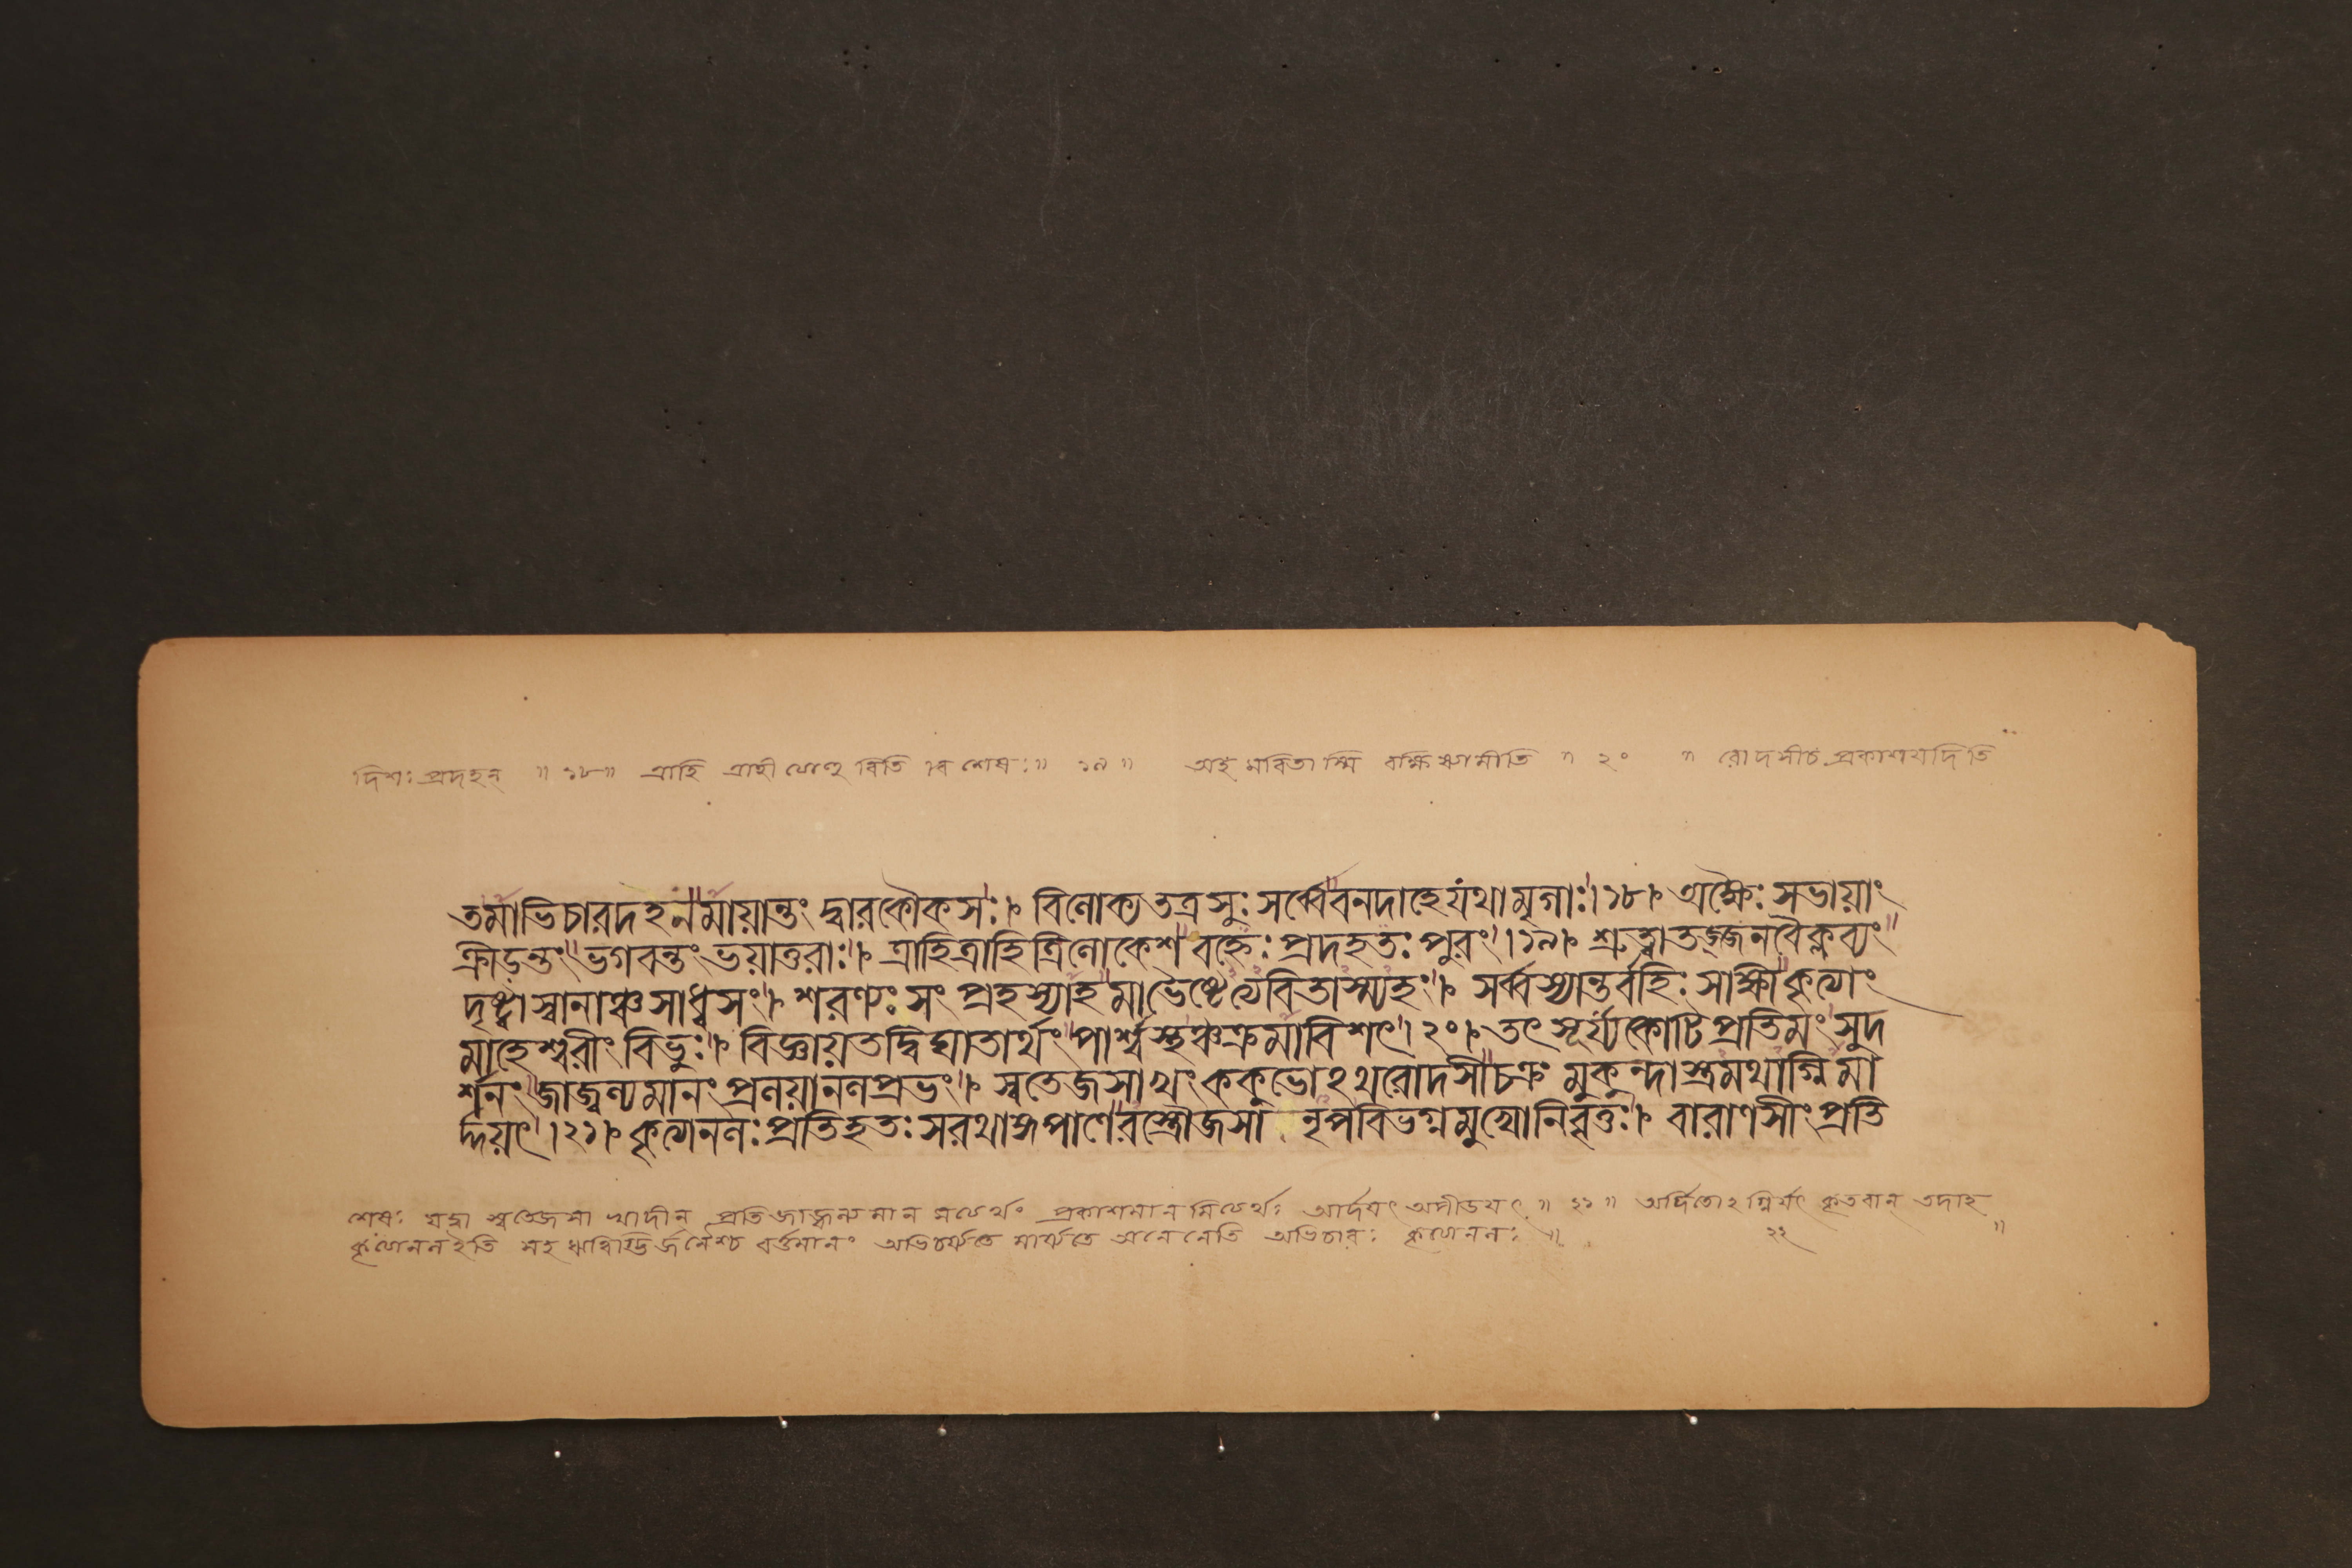 দিশঃ প্রদহন্ ॥ ১৮ ॥ ত্রাহি ত্রাহী শেষঃ ॥ ১৯ ॥ অহমবিতাস্মি ॥ ২০ ॥ রোদসীচ প্রকাশয়দিতি
তমাভিচারদহনমায়ান্তং দ্বারকৌকসঃ। বিলোক্য তত্রসুঃ সর্ব্বে বনদাহে যথা মৃগাঃ।১৮। অক্ষৈঃ সভায়াং
ক্রীড়ন্তং ভগবন্তং ভয়াতুরাঃ। ত্রাহি ত্রাহি ত্রিলোকেশ বহ্নেঃ প্রদহতঃ পুরং।১৯। শ্রুত্বা তজ্জনবৈক্লব্যং
দৃষ্ট্বা স্বানাঞ্চ সাধ্বসং। শরণ্যঃ সং প্রহস্যাহ মাভৈষ্টেত্যবিতাস্ম্যহং। সর্ব্বস্যান্তর্বহিঃ সাক্ষী কৃত্যাং
মাহেশ্বরীং বিভুঃ। বিজ্ঞায় তদ্বিঘাতার্থং পার্শ্বস্থঞ্চক্রমাবিশৎ।২০। তৎ সূর্য্যকোটিপ্রতিমং সুদ
র্শনং জাজ্বল্যমানং প্রলয়ানলপ্রভং। স্বতেজসা খং ককুভোঽথ রোদসী চক্রং মুকুন্দাস্ত্রমথাগ্নিমা
র্দ্দয়ৎ।২১। কৃত্যানলঃ প্রতিহতঃ স রথাঙ্গপাণেরস্ত্রৌজসা নৃপ বিভগ্নমুখো নিবৃত্তঃ। বারাণসীং প্রতি
শেষঃ যদ্বা স্বতেজসা খাদীন্ প্রতি জাজ্বল্যমান প্রকাশমানমিত্যর্থঃ আর্দয়ৎ অপীডয়ৎ ॥ ২১ ॥ অর্দিতোঽগ্নির্যৎ কৃতবান্ তদাহ
কৃত্যানল ইতি সহ ঋত্বিগ্ভির্জনৈশ্চ বর্ত্তমানং অভিচর্য্যতে মার্য্যতে অনেনেতি অভিচারঃ কৃত্যানলঃ ॥ ২২ ॥